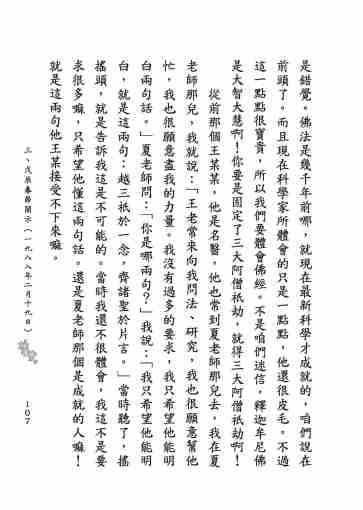 是錯覺。佛法是幾千年前哪，就現在最新科學才成就的，咱們說在
前頭了。而且現在科學家所體會的只是一點點，他還很皮毛。不過
這一點點很寶貴，所以我們要體會佛經。不是咱們迷信，釋迦牟尼佛
是大智大慧啊！你要是固定了三大阿僧祇劫，就得三大阿僧祇劫啊！
從前那個王某某，他是名醫，他也常到夏老師那兒去，我在夏
老師那兒，我就說：「王老常來向我問法、研究，我也很願意幫他
忙，我也很願意盡我的力量。我沒有過多的要求，我只希望他能明
白兩句話。」夏老師問：「你是哪兩句？」我說：「我只希望他能明
白，就是這兩句：越三祇於一念，齊諸聖於片言。」當時聽了，搖
搖頭，就是告訴我這是不可能的。當時我還不很體會，我這不是要
求很多嘛，只希望他懂這兩句話。還是夏老師那個是成就的人嘛！
就是這兩句他王某接受不下來嘛。
三、戊辰春節開示（一九八八年二月十九日）
107